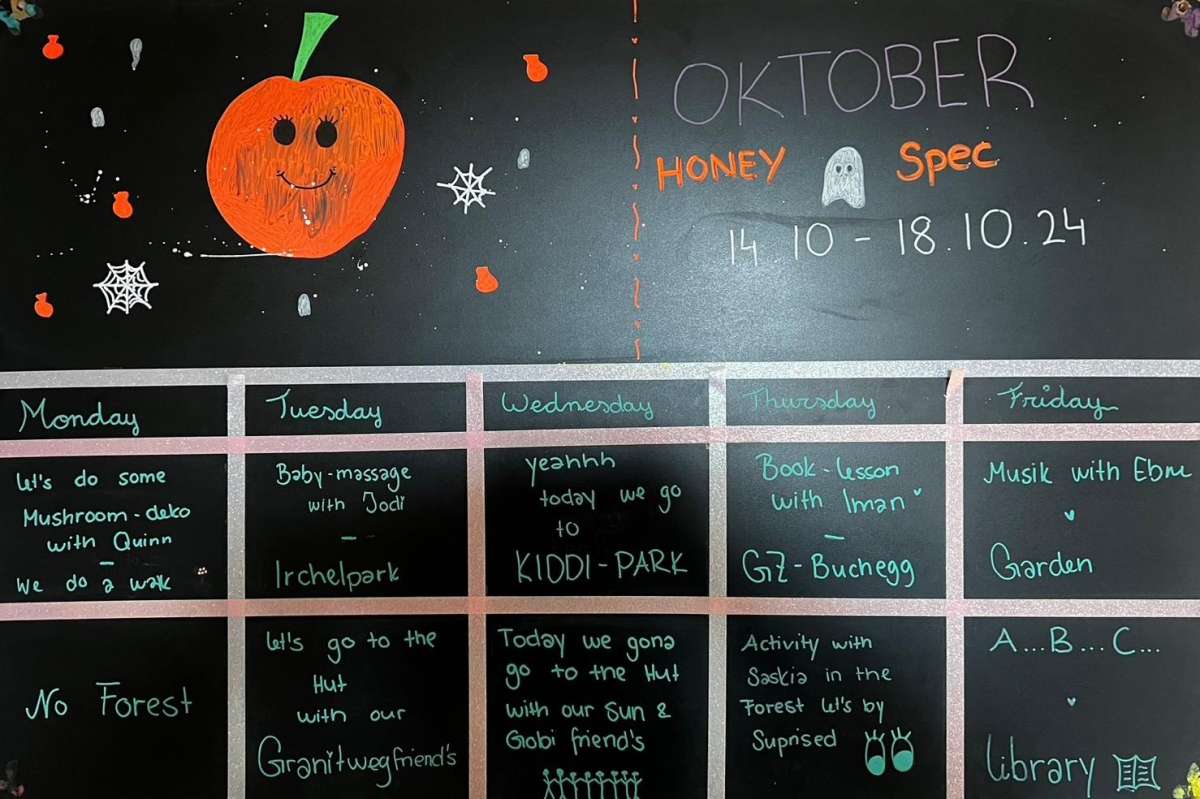 OKTOBER
HONEY Spec
14 10 - 18.10.24
Monday
Tuesday
Wednesday
Thursday
Friday
let's do some
Mushroom-deko
with Quinn
-
We do a walk
Baby-massage
with Jodi
-
Irchelpark
yeahhh
today we go
to
KIDDI-PARK
Book-lesson
with Iman
-
GZ-Buchegg
Musik with Ebru
Garden
No Forest
let's go to the
Hut
with our
Granitwegfriend's
Today we gona
go to the Hut
with our Sun &
Gobi friend's
Activity with
Saskia in the
Forest let's by
Suprised
A...B...C...
Library